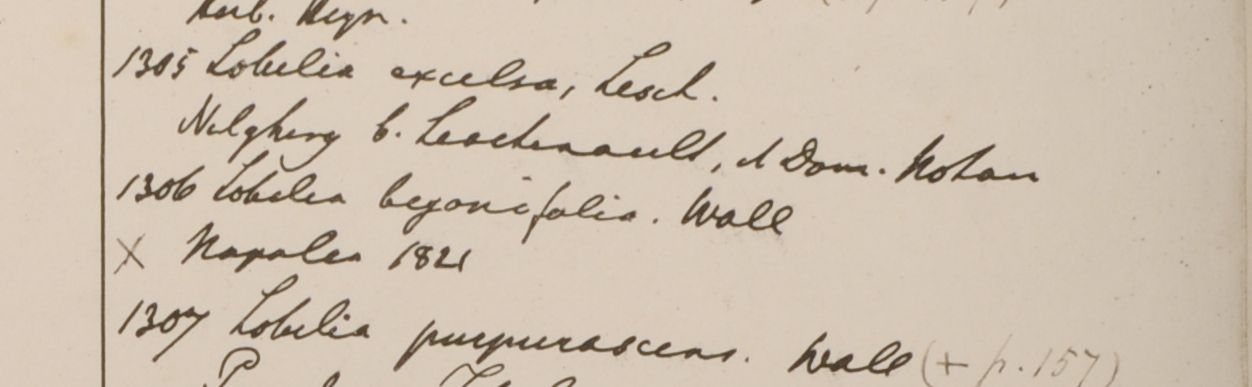 Herb. Heyn.
1305 Lobelia excelsa, Lesch.
Nilghery b. Leschenault, d Dom. Notan
1306 Lobelia begonifolia. Wall
X Napalea 1821
1307 Lobelia purpurascens. Wall (+ p. 157)